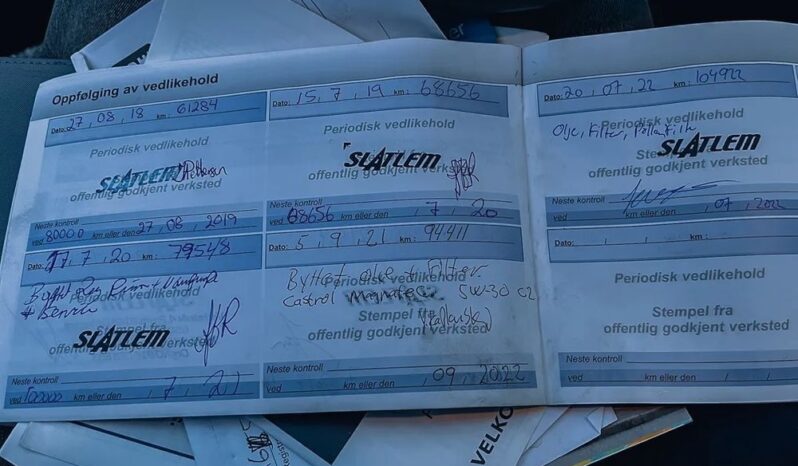 Oppfølging av vedlikehold
Dato: 27, 08, 18 km: 61284
Periodisk vedlikehold
SLATLEM Pettersen
offentlig godkjent verksted
Neste kontroll
ved 80000 km eller den 27, 08, 2019
Dato: 15, 7, 19 km: 68656
Periodisk vedlikehold
SLATLEM
offentlig godkjent verksted
Neste kontroll
ved 68656 km eller den , 7, 20
Dato: 20, 07, 22 km: 104922
Periodisk vedlikehold
Olje, Filter, Pollenfilter
Stempel fra
SLATLEM
offentlig godkjent verksted
Neste kontroll
ved km eller den , 07, 202
17, 7, 20 km: 79548
Byttet Reg Reim + Vannpumpe
Periodisk vedlikehold
+ Service
Stempel fra
SLATLEM
offentlig godkjent verksted
Neste kontroll
ved 100000 km eller den , 7, 21
Dato: 5, 9, 21 km: 94411
Byttet olje + Filter
Periodisk vedlikehold
Castrol 5W-30 C2
Stempel fra
offentlig godkjent verksted
Neste kontroll
ved km eller den , 09, 2022
Dato: , , km:
Periodisk vedlikehold
Stempel fra
offentlig godkjent verksted
Neste kontroll
ved km eller den , ,
VELKO